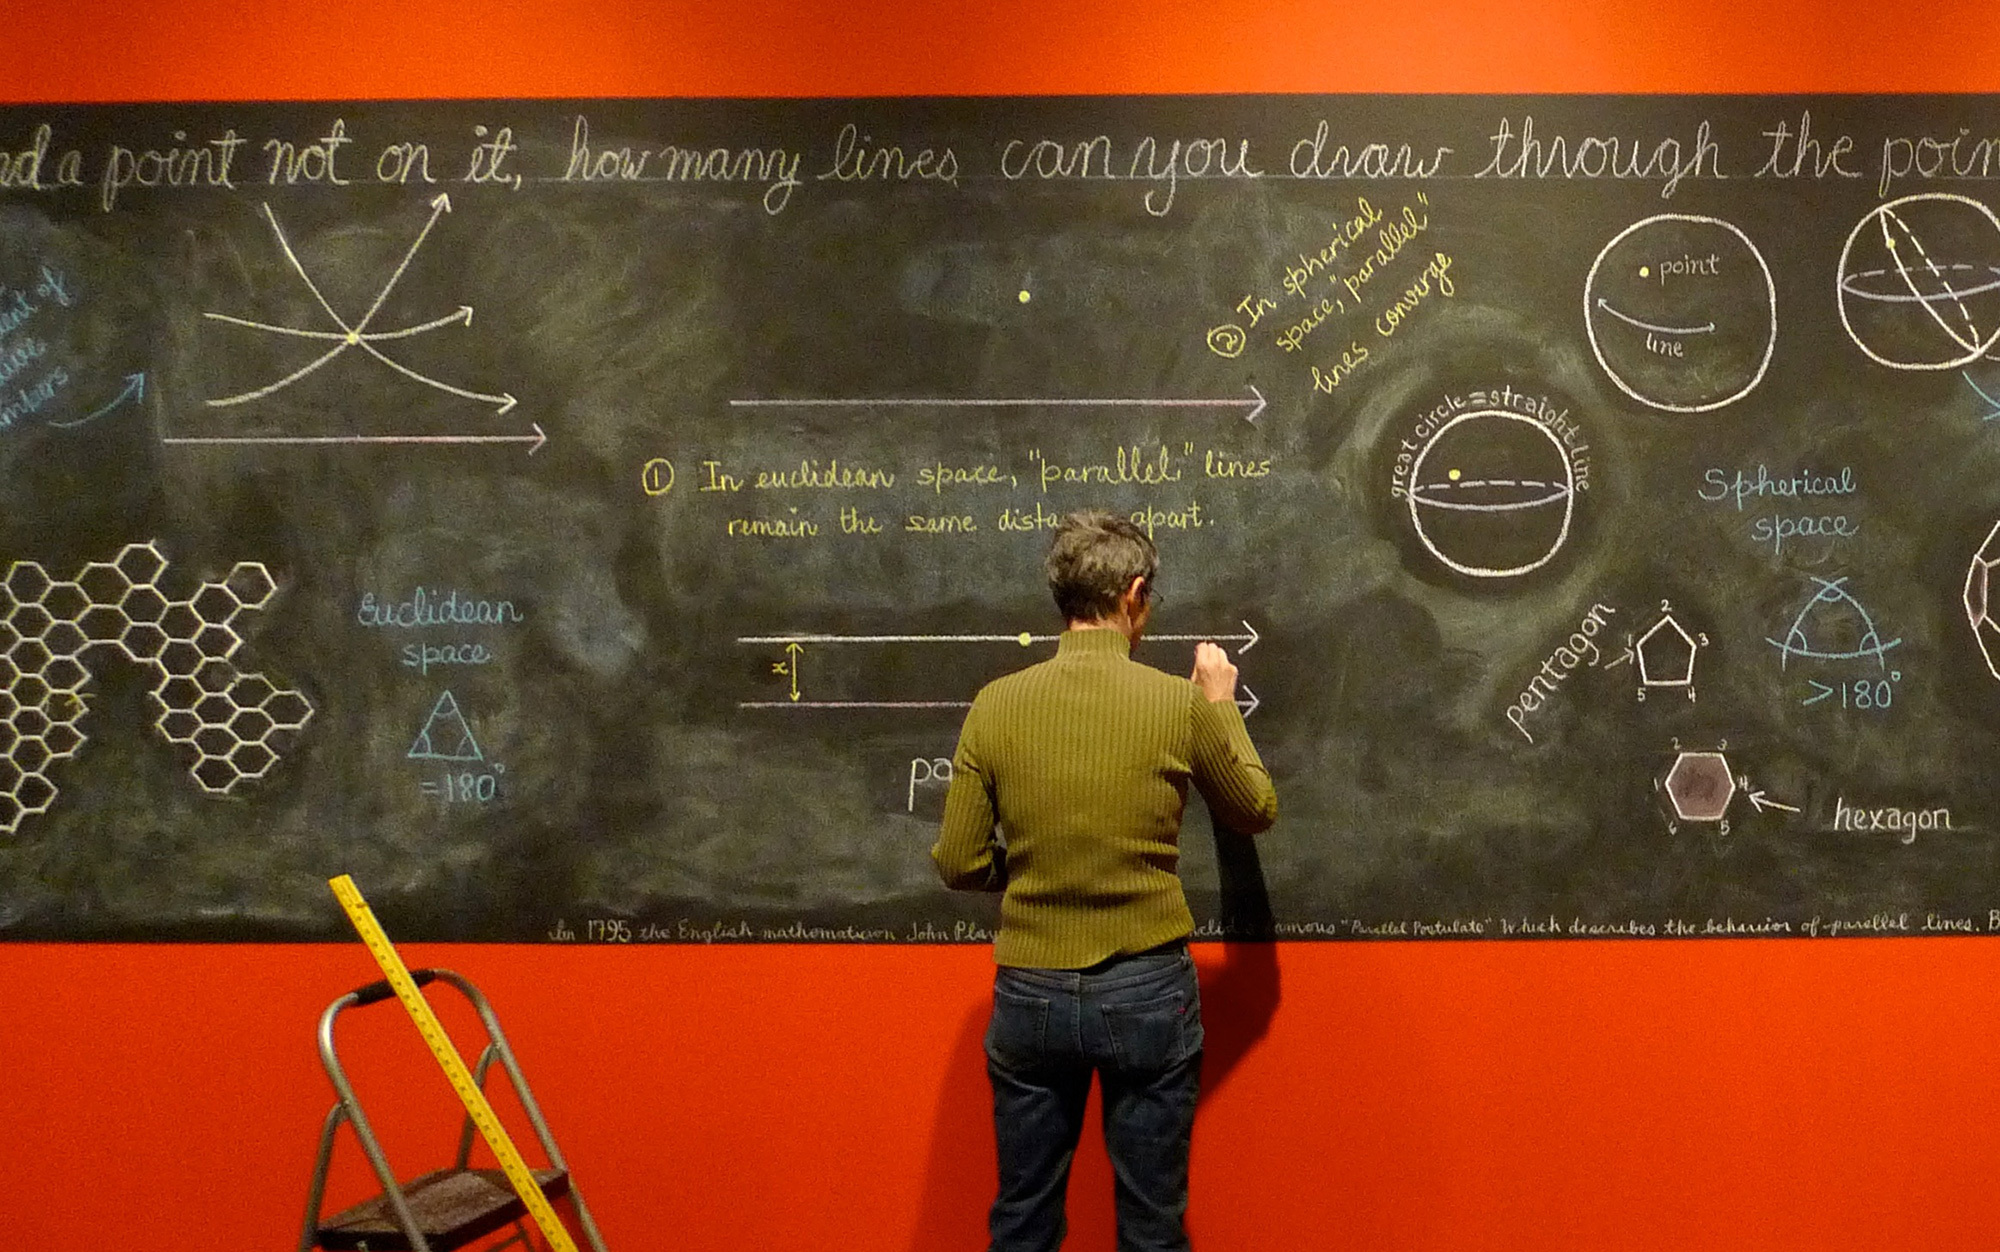 a point not on it, how many lines can you draw through the
② In spherical
space, "parallel"
lines converge
point
line
great circle = straight line
① In euclidean space, "parallel" lines
remain the same apart.
Spherical
space
Euclidean
space
= 180°
x
pentagon
1 2 3 4 5
> 180°
hexagon
1 2 3 4 5 6
In 1795 the English mathematician John "Parallel Postulate" Which describes the behavior of parallel lines.